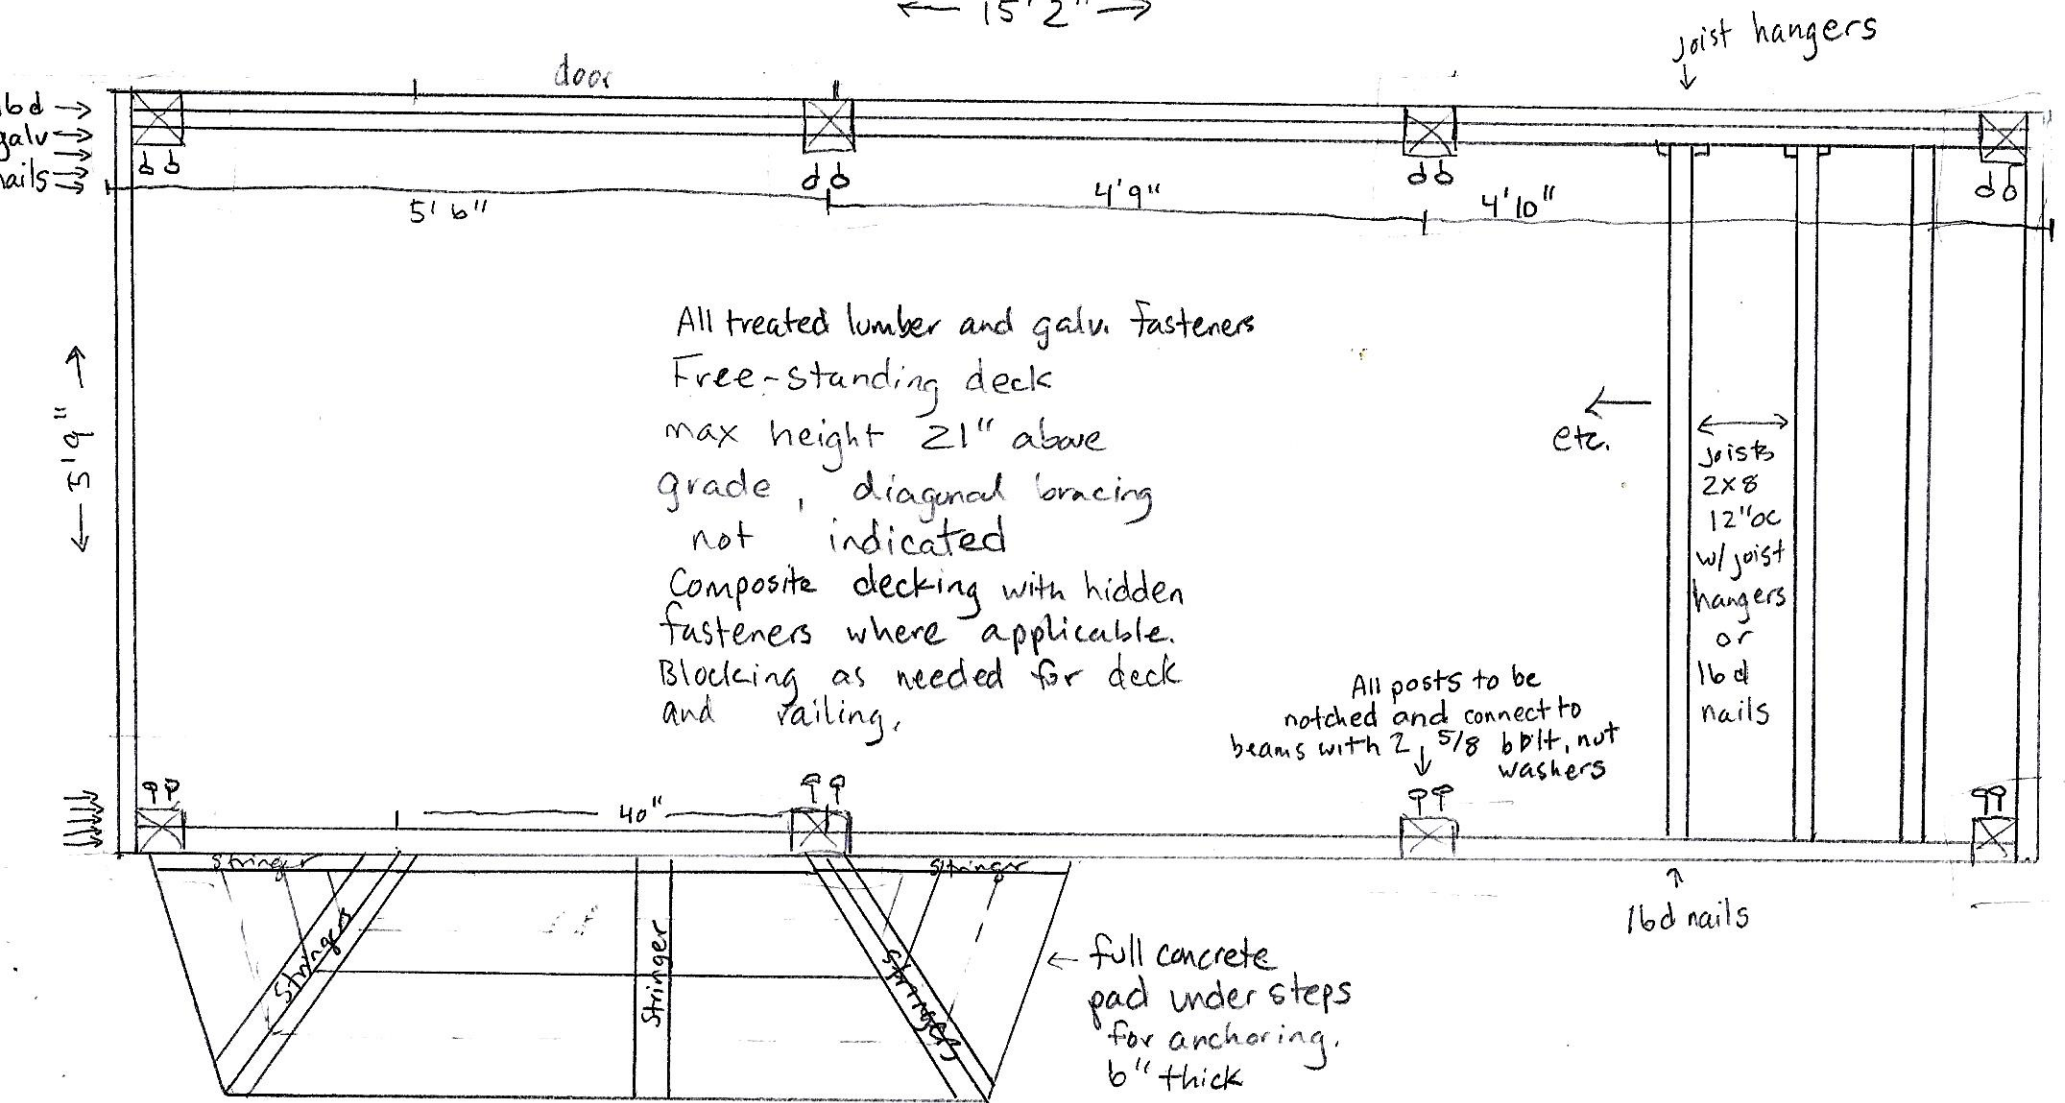 15'2"
joist hangers
door
16d
galv
nails
5'6"
4'9"
4'10"
All treated lumber and galv. fasteners
Free-standing deck
max height 21" above
grade, diagonal bracing
not indicated
Composite decking with hidden
fasteners where applicable.
Blocking as needed for deck
and railing.
5'9"
etc.
joists
2x8
12"oc
w/joist
hangers
or
16d
nails
All posts to be
notched and connect to
beams with 2, 5/8 bolt, nut
washers
40"
Stringer
Stringer
Stringers
Stringer
Stringers
16d nails
full concrete
pad under steps
for anchoring.
6" thick